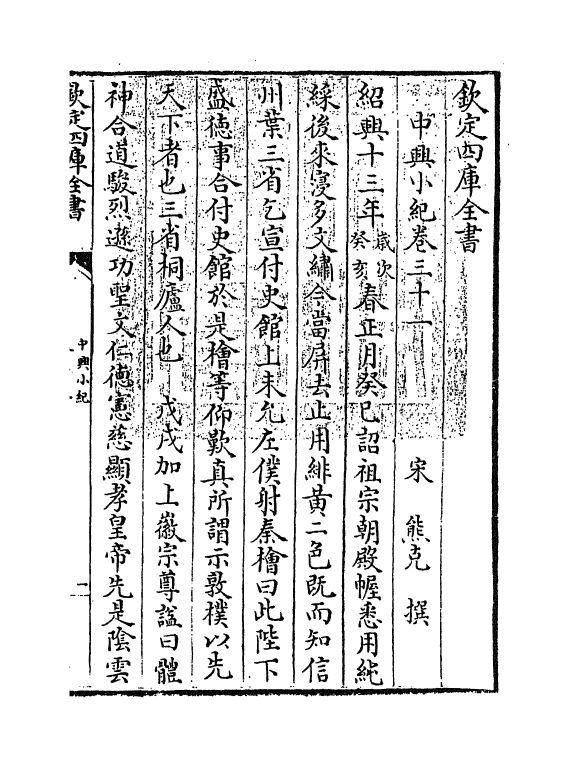 欽定四庫全書
中興小紀卷三十一
宋 熊克 撰
紹興十三年歲次癸亥春正月癸巳詔祖宗朝殿幄悉用純
綵後來寖多文繡今當屏去止用緋黃二色既而知信
州葉三省乞宣付史館上未允左僕射秦檜曰此陛下
盛徳事合付史館於是檜等仰歎真所謂示敦樸以先
天下者也三省桐廬人也 戊戌加上徽宗尊諡曰體
神合道駿烈遜功聖文仁德憲慈顯孝皇帝先是陰雲
欽定四庫全書
中興小紀
一